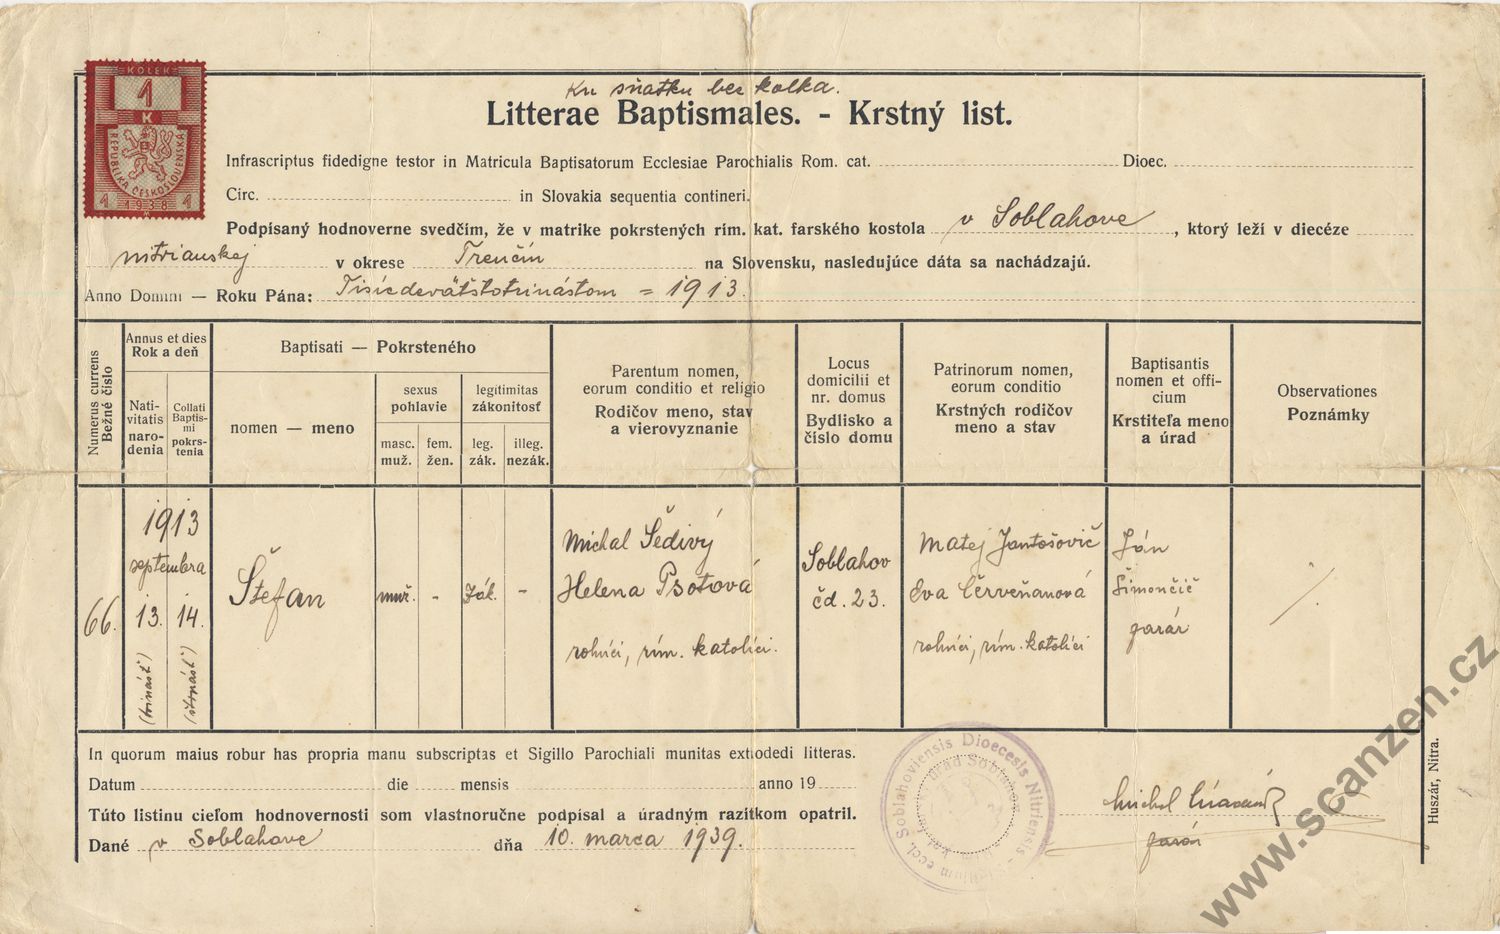 KOLEK
1
K
REPUBLIKA ČESKOSLOVENSKÁ
1 1938 1
Ku sňatku bez kolka.
Litterae Baptismales. - Krstný list.
Infrascriptus fidedigne testor in Matricula Baptisatorum Ecclesiae Parochialis Rom. cat. Dioec.
Circ. in Slovakia sequentia contineri.
Podpísaný hodnoverne svedčím, že v matrike pokrstených rím. kat. farského kostola v Soblahove, ktorý leží v diecéze
nitrianskej v okrese Trenčín na Slovensku, nasledujúce dáta sa nachádzajú.
Anno Domini — Roku Pána: Tisícdeväťstotrinástom = 1913.
Numerus currens
Bežné číslo
Annus et dies
Rok a deň
Nati-
vitatis
naro-
denia
Collati
Baptis-
mi
pokrs-
tenia
Baptisati — Pokrsteného
nomen — meno
sexus
pohlavie
masc.
muž.
fem.
žen.
legitimitas
zákonitosť
leg.
zák.
illeg.
nezák.
Parentum nomen,
eorum conditio et religio
Rodičov meno, stav
a vierovyznanie
Locus
domicilii et
nr. domus
Bydlisko a
číslo domu
Patrinorum nomen,
eorum conditio
Krstných rodičov
meno a stav
Baptisantis
nomen et offi-
cium
Krstiteľa meno
a úrad
Observationes
Poznámky
66.
1913
septembra
13. 14.
(trinásť)
(štrnásť)
Štefan
muž.
-
Zák.
-
Michal Šedivý
Helena Psotová
roľníci, rím. katolíci.
Soblahov
čd. 23.
Matej Jantošovič
Eva Červeňanová
roľníci, rím. katolíci
Ján
Šimončič
farár
In quorum maius robur has propria manu subscriptas et Sigillo Parochiali munitas extradedi litteras.
Datum die mensis anno 19
Túto listinu cieľom hodnovernosti som vlastnoručne podpísal a úradným razítkom opatril.
Dané v Soblahove dňa 10. marca 1939.
Michal
farár
Soblahoviensis Dioecesis Nitriensis
Huszár, Nitra.
www.scanzen.cz